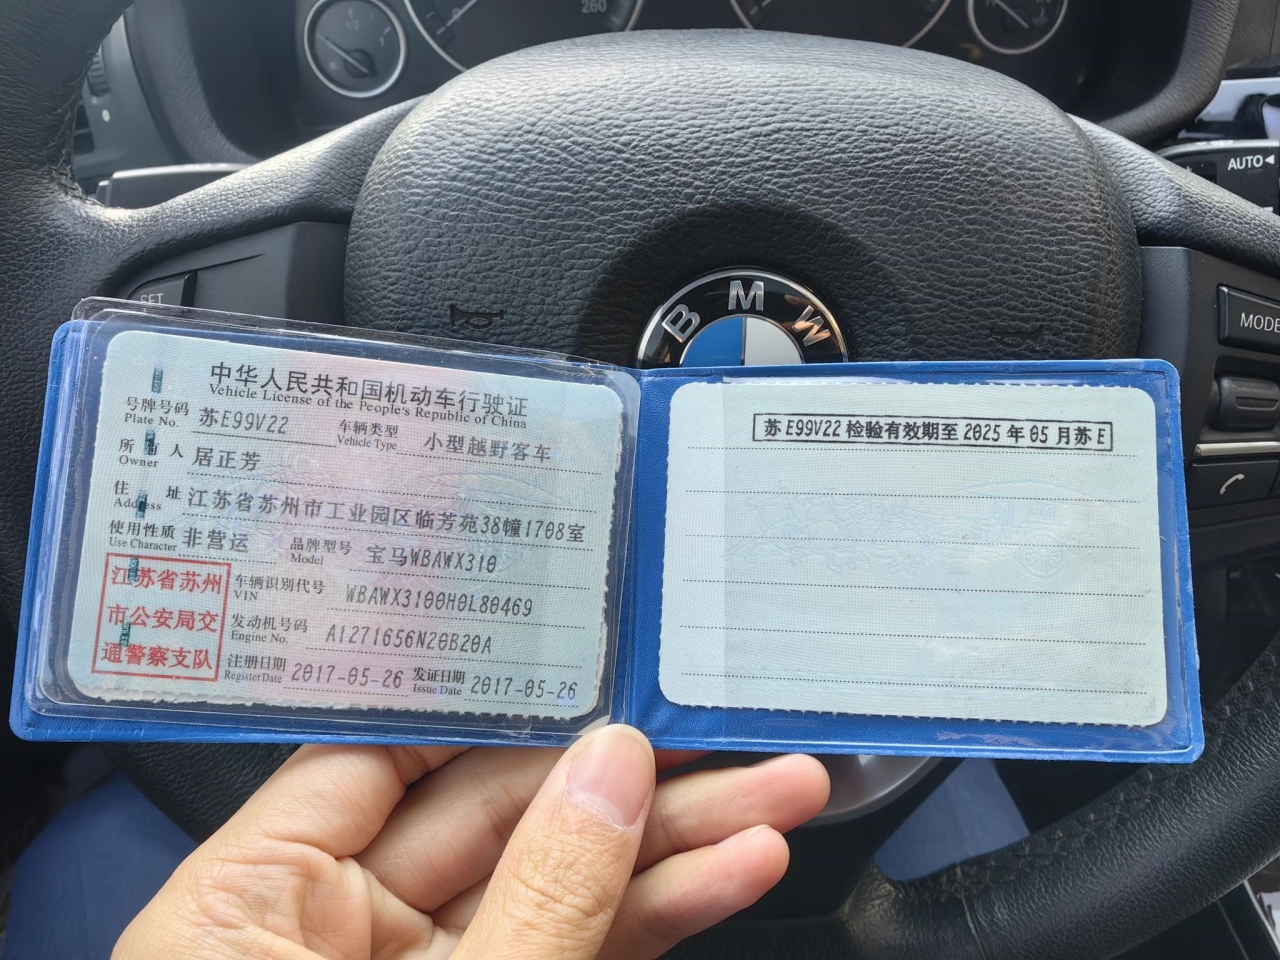 260
AUTO
SET
MODE
BMW
中华人民共和国机动车行驶证
Vehicle License of the People's Republic of China
号牌号码 苏E99V22 车辆类型 小型越野客车
Plate No. Vehicle Type
所有人 居正芳
Owner
住址 江苏省苏州市工业园区临芳苑38幢1708室
Address
使用性质 非营运 品牌型号 宝马WBAWX310
Use Character Model
江苏省苏州
市公安局交
通警察支队
车辆识别代号 WBAWX3100H0L80469
VIN
发动机号码 A1271656N20B20A
Engine No.
注册日期 2017-05-26 发证日期 2017-05-26
Register Date Issue Date
苏E99V22检验有效期至2025年05月苏E